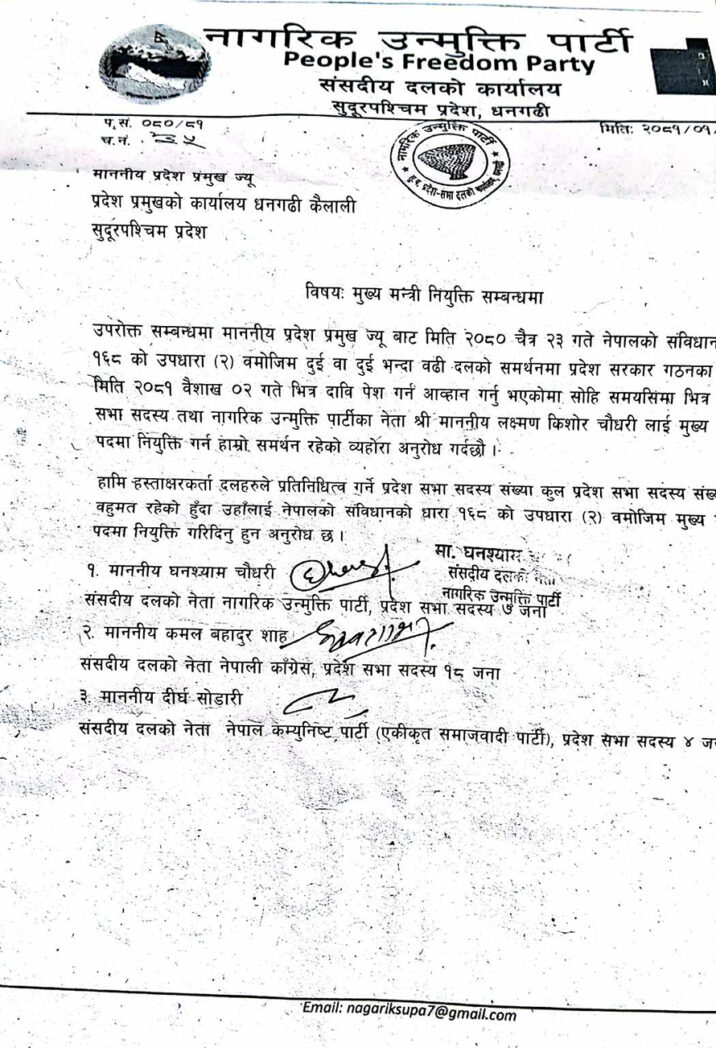 नागरिक उन्मुक्ति पार्टी
People's Freedom Party
संसदीय दलको कार्यालय
सुदूरपश्चिम प्रदेश, धनगढी
प.सं. ०८०/८१
च.नं.
मितिः २०८१/०१/
नागरिक उन्मुक्ति पार्टी
माननीय प्रदेश प्रमुख ज्यू
प्रदेश प्रमुखको कार्यालय धनगढी कैलाली
सुदूरपश्चिम प्रदेश
विषयः मुख्य मन्त्री नियुक्ति सम्बन्धमा
उपरोक्त सम्बन्धमा माननीय प्रदेश प्रमुख ज्यू बाट मिति २०८० चैत्र २३ गते नेपालको संविधान
१६८ को उपधारा (२) वमोजिम दुई वा दुई भन्दा वढी दलको समर्थनमा प्रदेश सरकार गठनका
मिति २०८१ वैशाख ०२ गते भित्र दावि पेश गर्न आव्हान गर्नु भएकोमा सोहि समयसिमा भित्र
सभा सदस्य तथा नागरिक उन्मुक्ति पार्टीका नेता श्री माननीय लक्ष्मण किशोर चौधरी लाई मुख्य
पदमा नियुक्ति गर्न हाम्रो समर्थन रहेको व्यहोरा अनुरोध गर्दछौ ।
हामि हस्ताक्षरकर्ता दलहरुले प्रतिनिधित्व गर्ने प्रदेश सभा सदस्य संख्या कुल प्रदेश सभा सदस्य संख्
वहुमत रहेको हुँदा उहाँलाई नेपालको संविधानको धारा १६८ को उपधारा (२) वमोजिम मुख्य
पदमा नियुक्ति गरिदिनु हुन अनुरोध छ ।
मा. घनश्याम
१. माननीय घनश्याम चौधरी
संसदीय दलको नेता
नागरिक उन्मुक्ति पार्टी
संसदीय दलको नेता नागरिक उन्मुक्ति पार्टी, प्रदेश सभा सदस्य ७ जना
२. माननीय कमल बहादुर शाह
संसदीय दलको नेता नेपाली काँग्रेस, प्रदेश सभा सदस्य १८ जना
३. माननीय दीर्घ सोडारी
संसदीय दलको नेता नेपाल कम्युनिष्ट पार्टी (एकीकृत समाजवादी पार्टी), प्रदेश सभा सदस्य ४ ज
Email: nagariksupa7@gmail.com